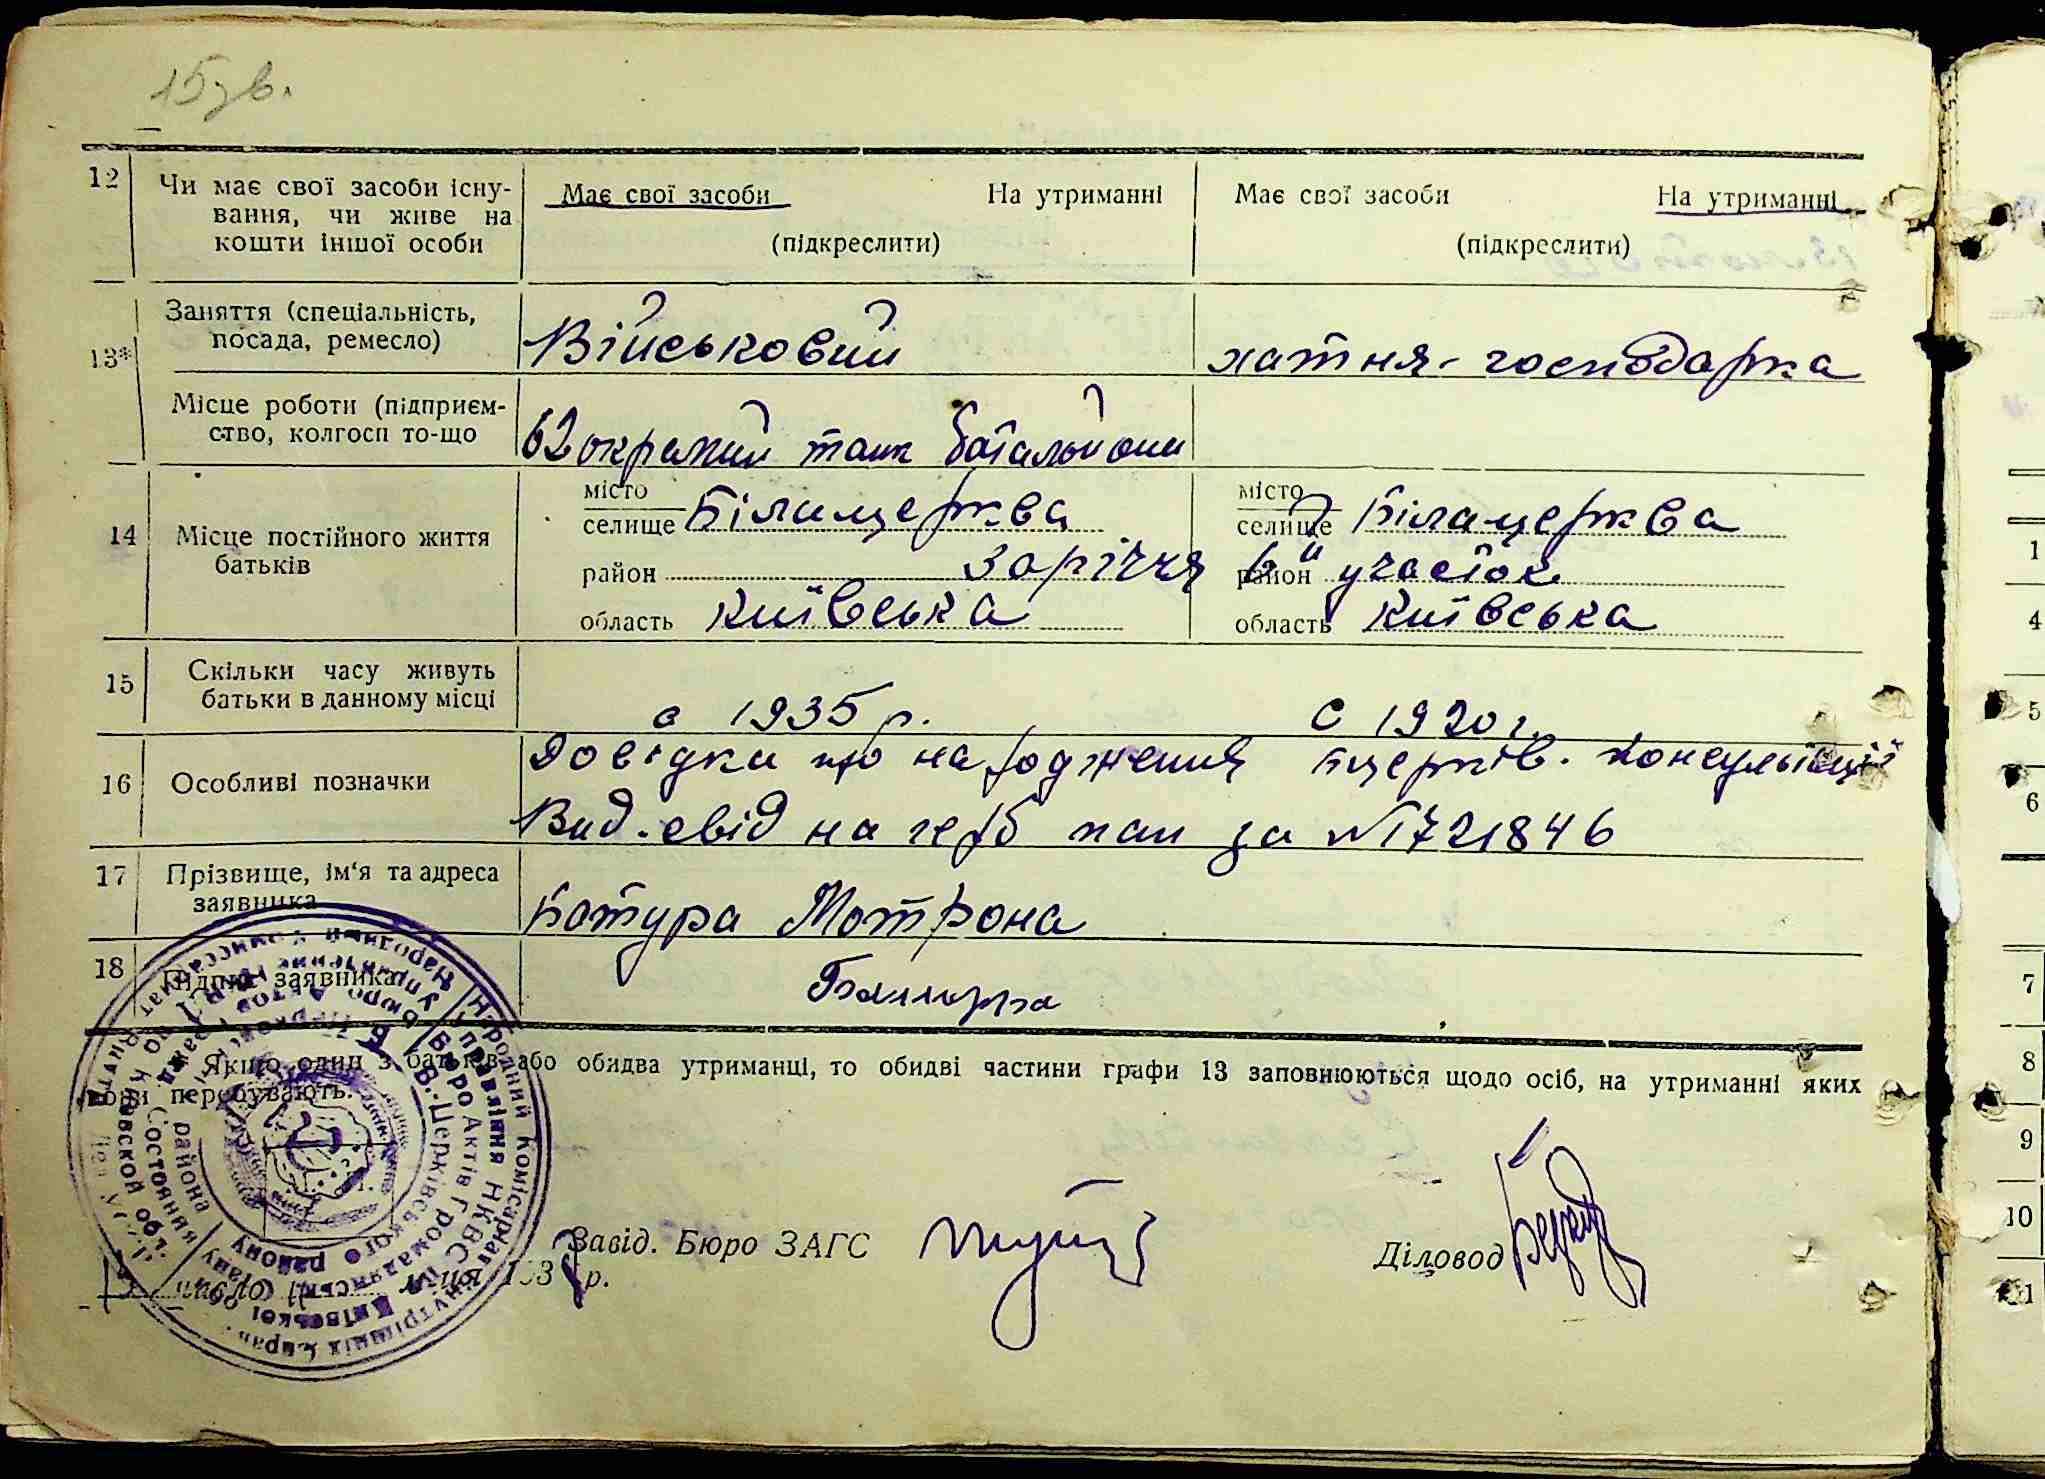 15 зв.
12 Чи має свої засоби існу- Має свої засоби На утриманні Має свої засоби На утриманні
вання, чи живе на
кошти іншої особи (підкреслити) (підкреслити)
13* Заняття (спеціальність,
посада, ремесло) Військовий хатня-господарка
Місце роботи (підприєм-
ство, колгосп то-що 62 окремий танк батальйони
14 Місце постійного життя
батьків
місто
селище Білацерква
район Заріччя
область Київська
місто
селище Білацерква
район 6й участок
область Київська
15 Скільки часу живуть
батьки в данному місці с 1935 р. с 1920 г.
16 Особливі позначки Довідки про народження Бцерків. консультації
Вид. свід на герб пап за №1721846
17 Прізвище, ім'я та адреса
заявника Мотрона
18 Підпис заявника
Якщо один з батьків або обидва утриманці, то обидві частини графи 13 заповнюються щодо осіб, на утриманні яких
вони перебувають.
Народний Комісаріат Внутрішніх Справ
Управління НКВС Київської
Бюро Актів Громадянськ.
Б.-Церківського району
Завід. Бюро ЗАГС Діловод
193 р.
1
4
5
6
7
8
9
10